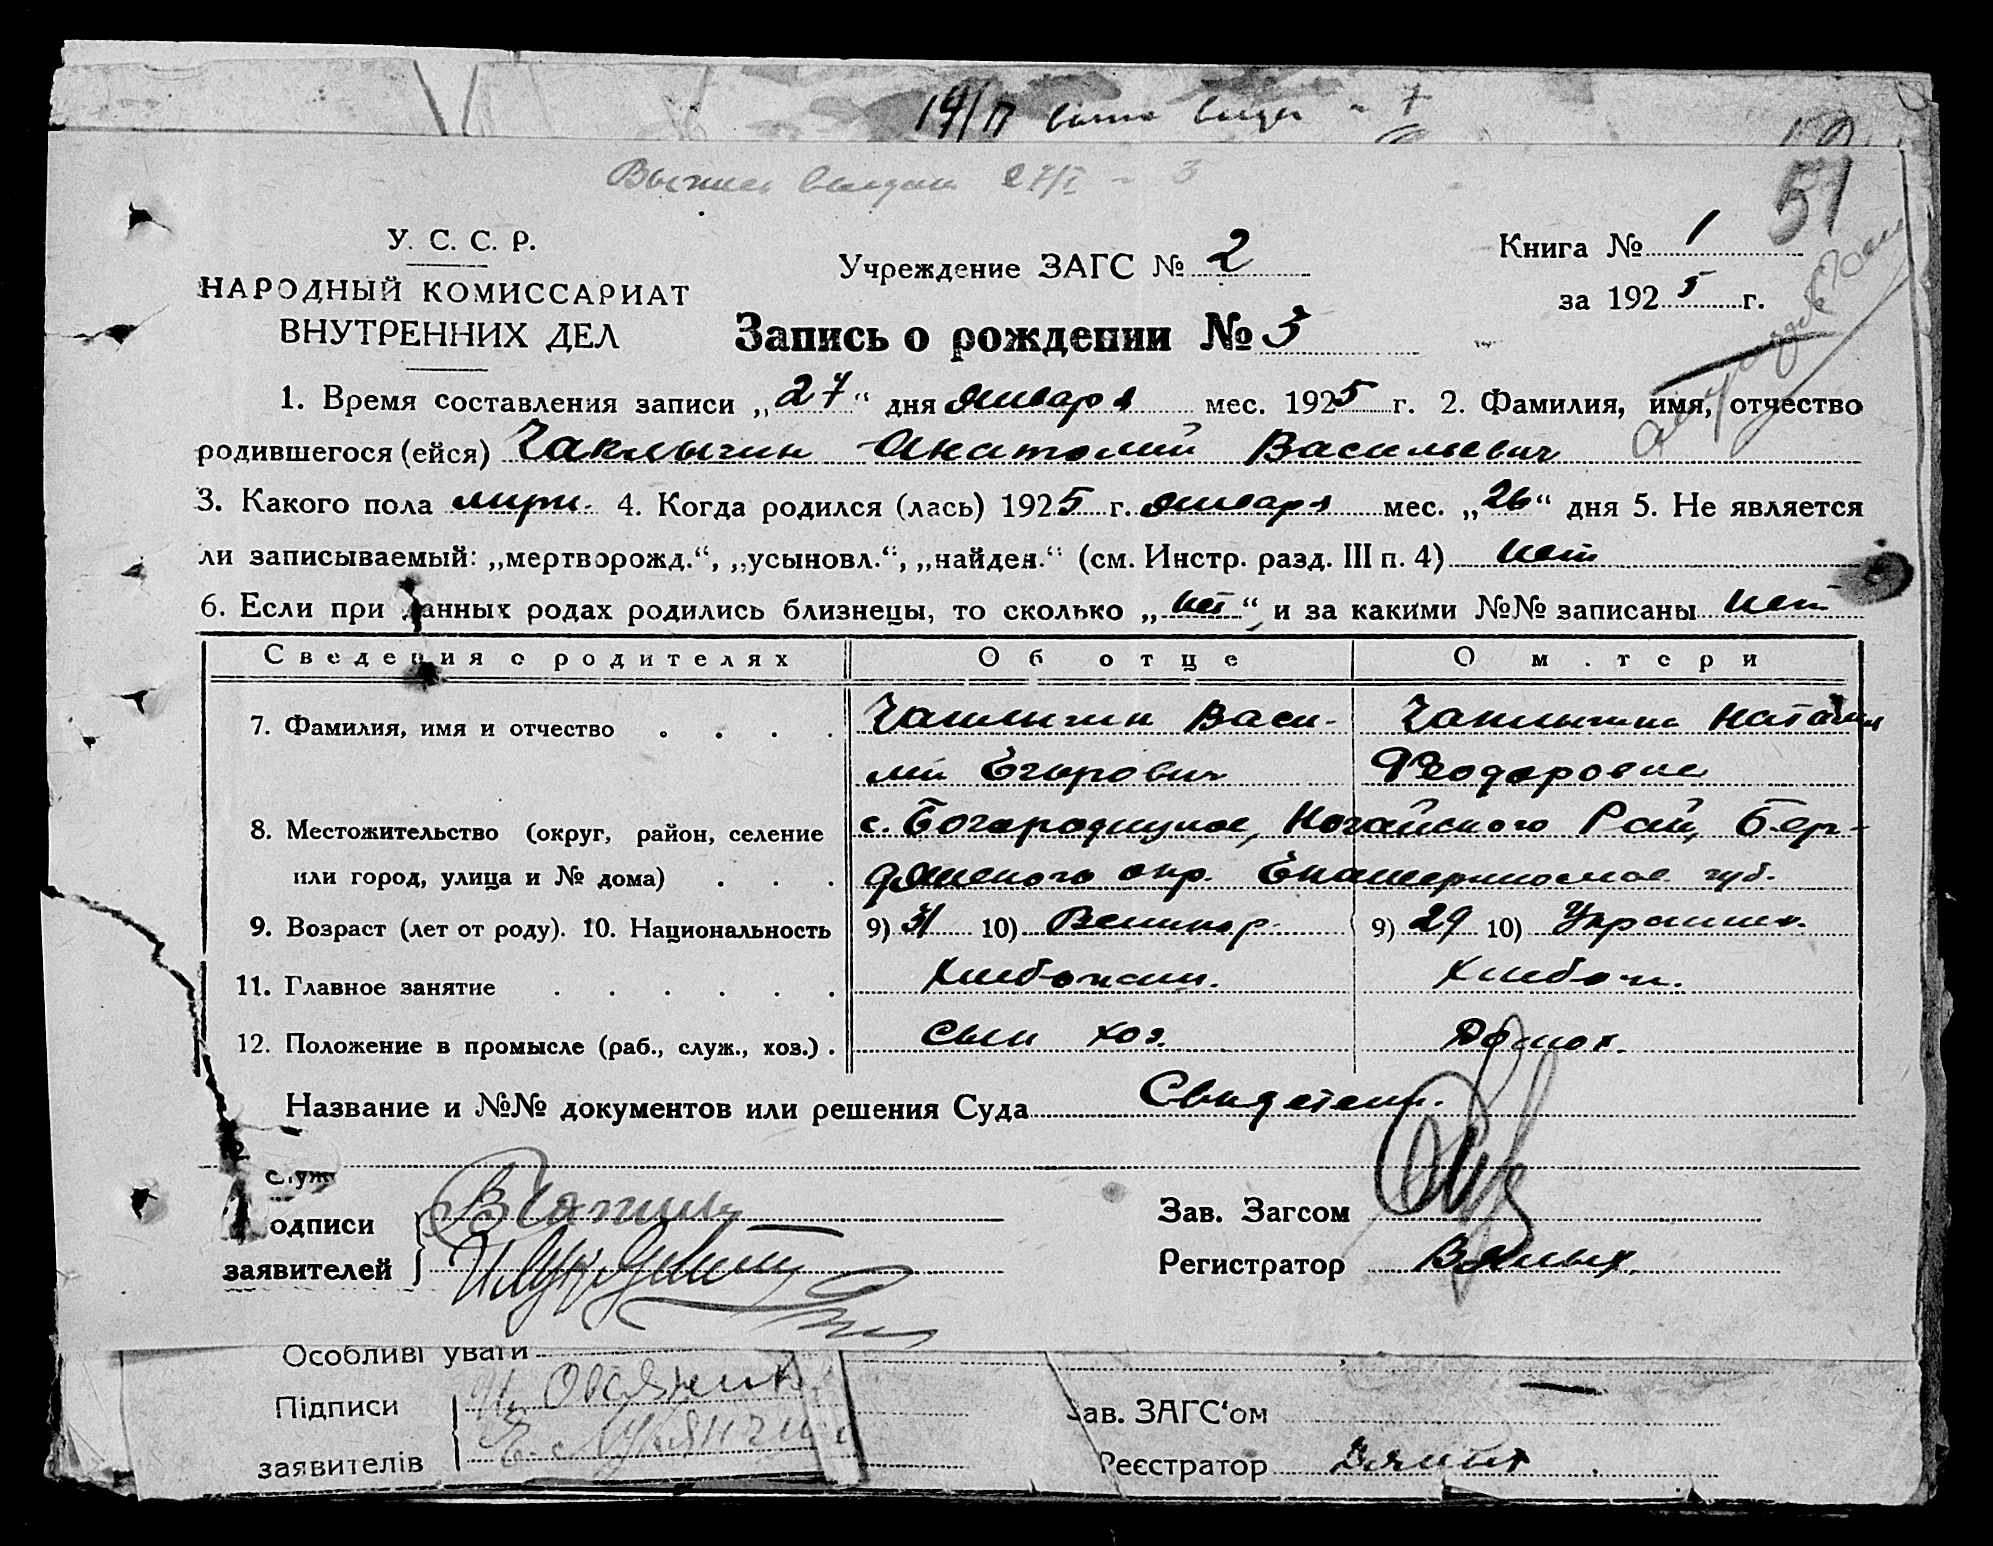 19/II
Выпись выдана 27/I - 3
51
У. С. С. Р.
НАРОДНЫЙ КОМИССАРИАТ
ВНУТРЕННИХ ДЕЛ
Учреждение ЗАГС № 2
Книга № 1
за 1925 г.
Запись о рождении № 3
1. Время составления записи „27“ дня января мес. 1925 г. 2. Фамилия, имя, отчество
родившегося (ейся) Чаклычин Анатолий Васильевич
3. Какого пола муж. 4. Когда родился (лась) 1925 г. января мес. „26“ дня 5. Не является
ли записываемый: „мертворожд.“, „усыновл.“, „найден.“ (см. Инстр. разд. III п. 4) нет
6. Если при данных родах родились близнецы, то сколько „нет“ и за какими №№ записаны нет
Сведения о родителях Об отце О м.тери
7. Фамилия, имя и отчество Васи- Наталия
лий Егорович Феодоровна
8. Местожительство (округ, район, селение с. Богородицкое, Ногайского Рай, Бер-
или город, улица и № дома) дянского окр. Екатеринославс губ.
9. Возраст (лет от роду). 10. Национальность 9) 31 10) Великор. 9) 29 10) Украинк.
11. Главное занятие Хлебопаш. Хлебоп.
12. Положение в промысле (раб., служ., хоз.) Сын хоз. Домох.
Название и №№ документов или решения Суда Свидетели.
служ
одписи
заявителей
Зав. Загсом
Регистратор
Особливі уваги
Підписи
заявителів
Зав. ЗАГС'ом
Реєстратор